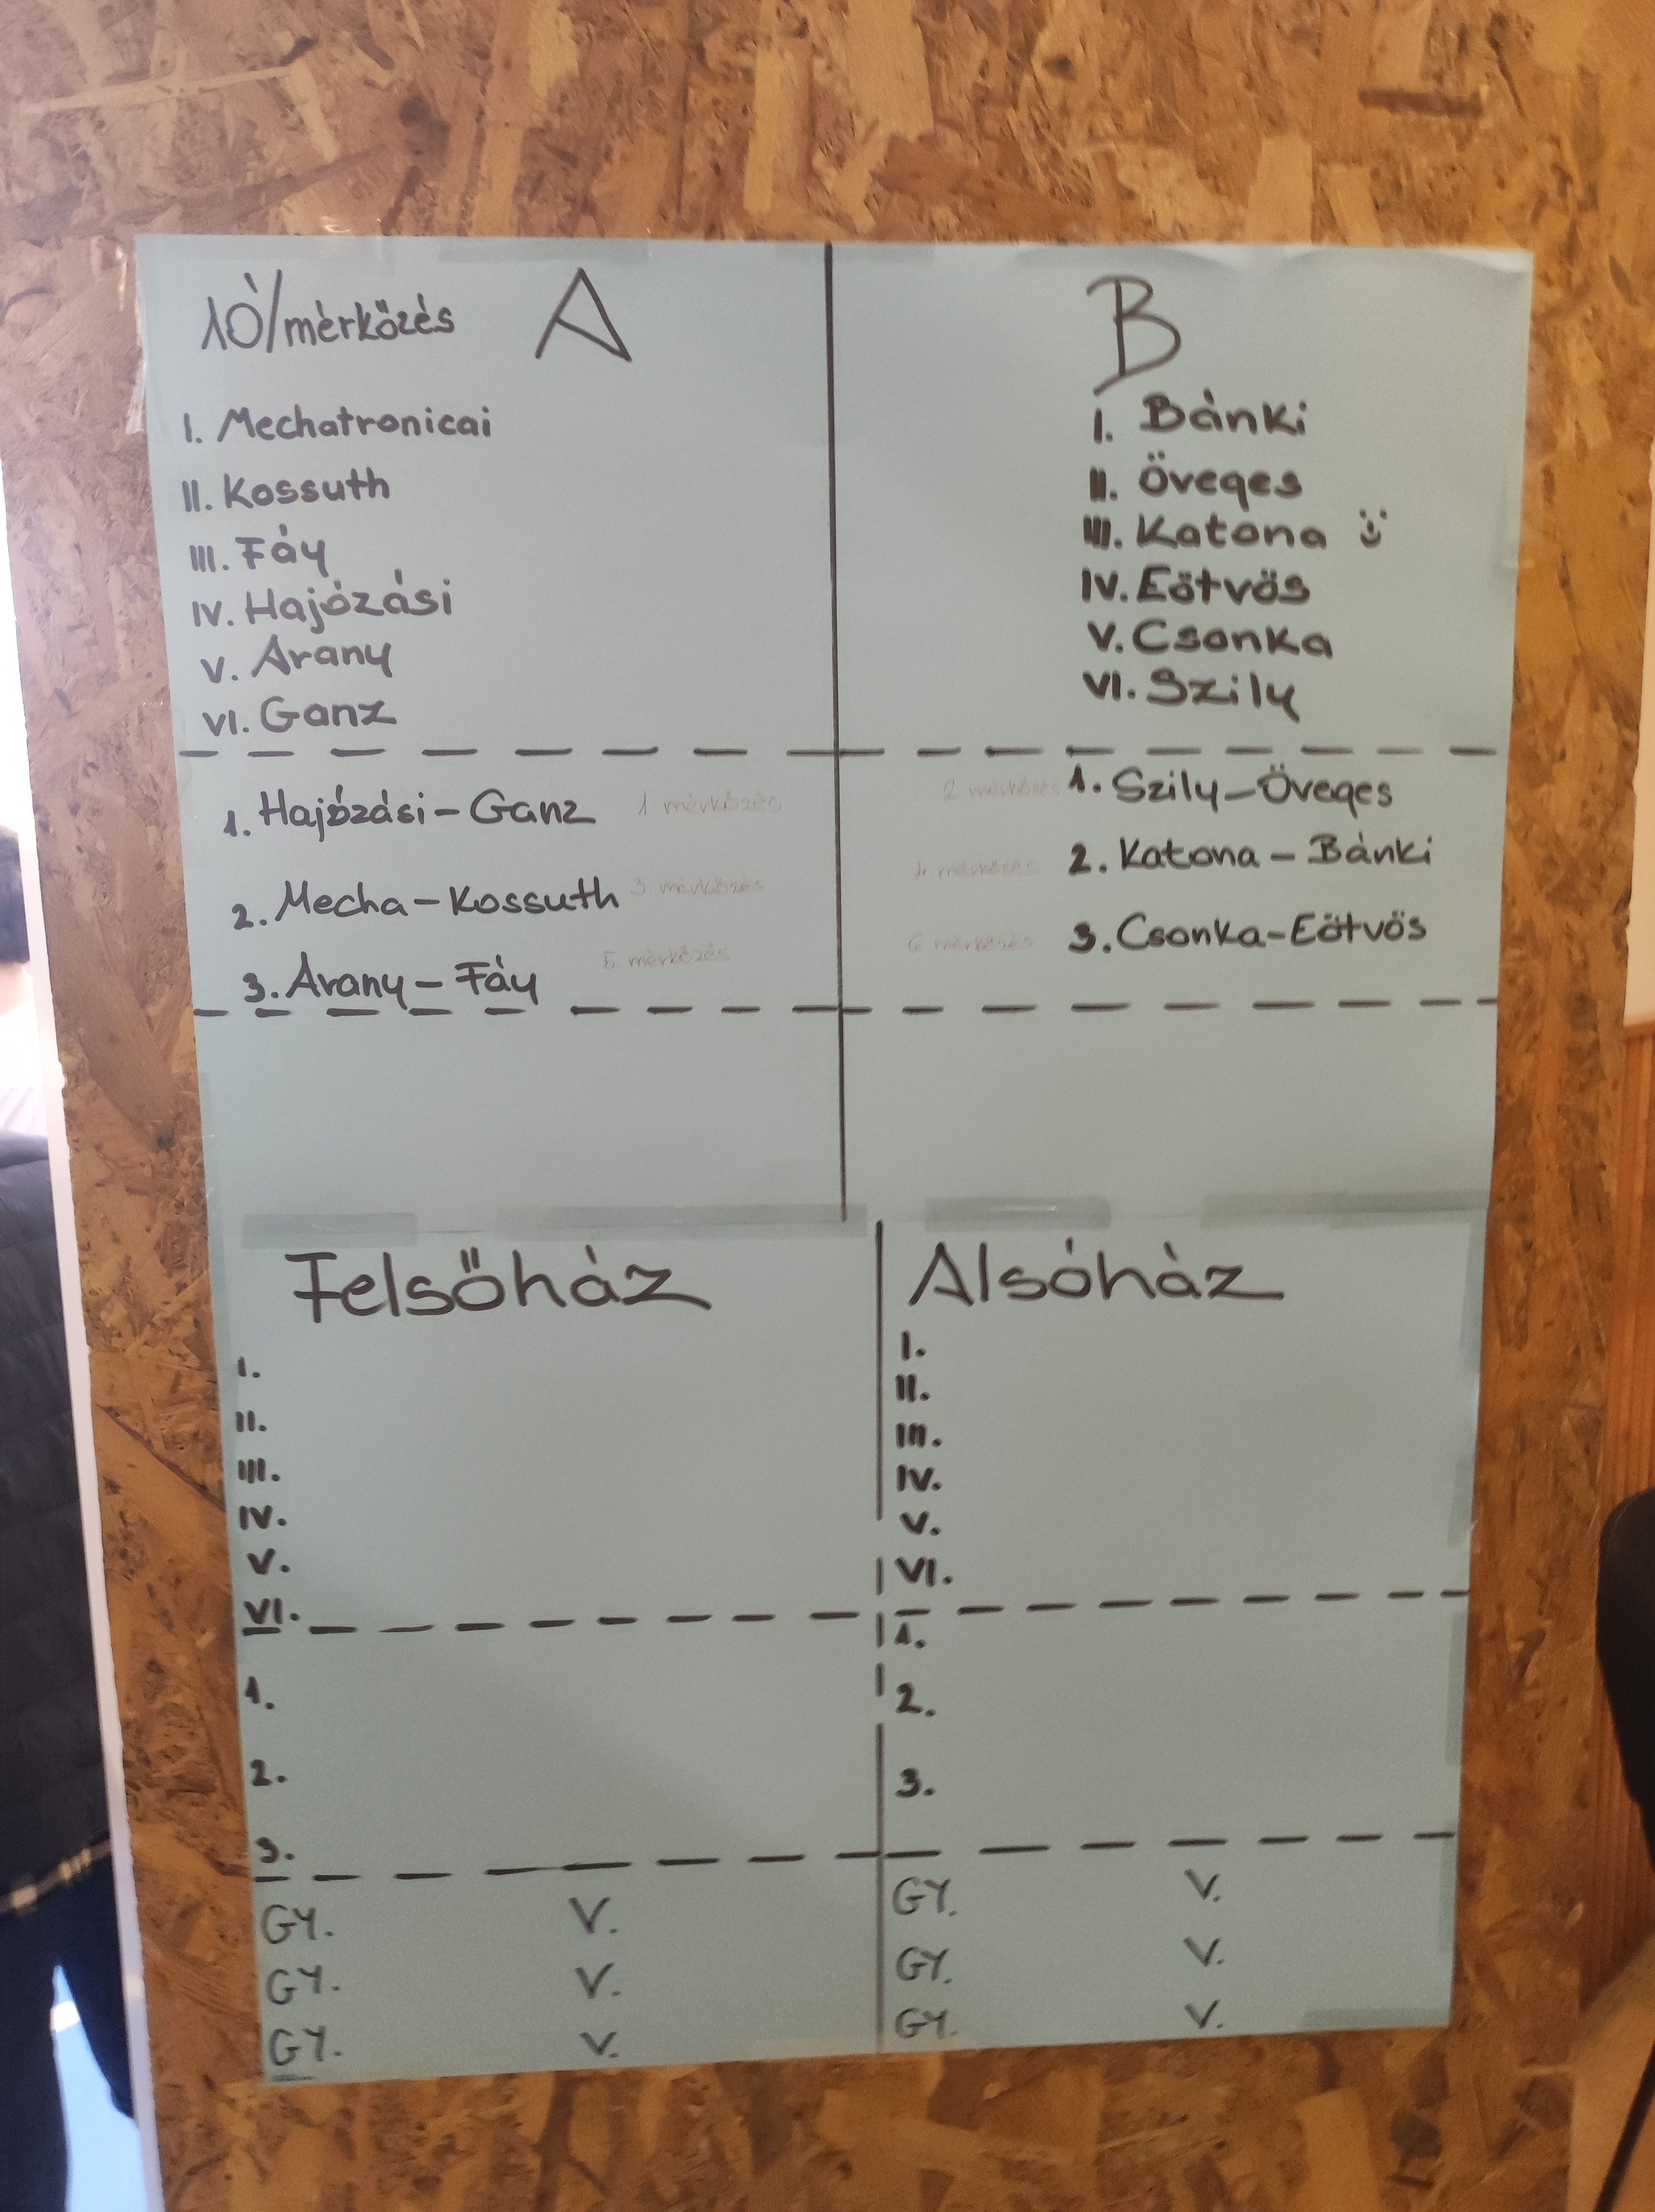 10'/mérkőzés A
I. Mechatronicai
II. Kossuth
III. Fáy
IV. Hajózási
V. Arany
VI. Ganz
1. Hajózási - Ganz 1 mérkőzés
2. Mecha - Kossuth 3. mérkőzés
3. Arany - Fáy 5. mérkőzés
B
I. Bánki
II. Öveges
III. Katona :)
IV. Eötvös
V. Csonka
VI. Szily
2 mérkőzés 1. Szily - Öveges
4 mérkőzés 2. Katona - Bánki
6 mérkőzés 3. Csonka - Eötvös
Felsőház
I.
II.
III.
IV.
V.
VI.
1.
2.
3.
GY. V.
GY. V.
GY. V.
Alsóház
I.
II.
III.
IV.
V.
VI.
1.
2.
3.
GY. V.
GY. V.
GY. V.